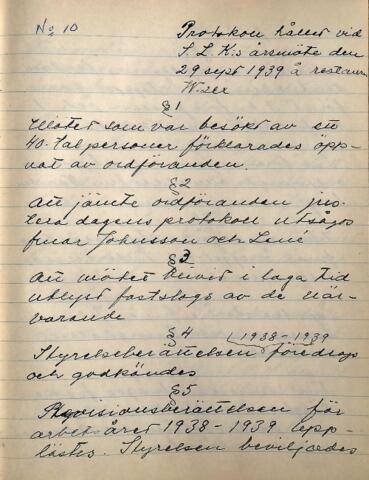 No 10
Protokoll hållet vid
S. L. K:s årsmöte den
29 sept 1939 å restaur
W:sex
§1
Mötet som var besökt av ett
40-tal personer förklarades öpp-
nat av ordföranden.
§2
Att jämte ordföranden jus-
tera dagens protokoll utsågos
hrrar Johnsson och Lené
§3
Att mötet blivit i laga tid
utlyst fastslogs av de när-
varande
§4
1938-1939
Styrelseberättelsen föredrogs
och godkändes
§5
Revisionsberättelsen för
arbetsåret 1938-1939 upp-
lästes. Styrelsen beviljades